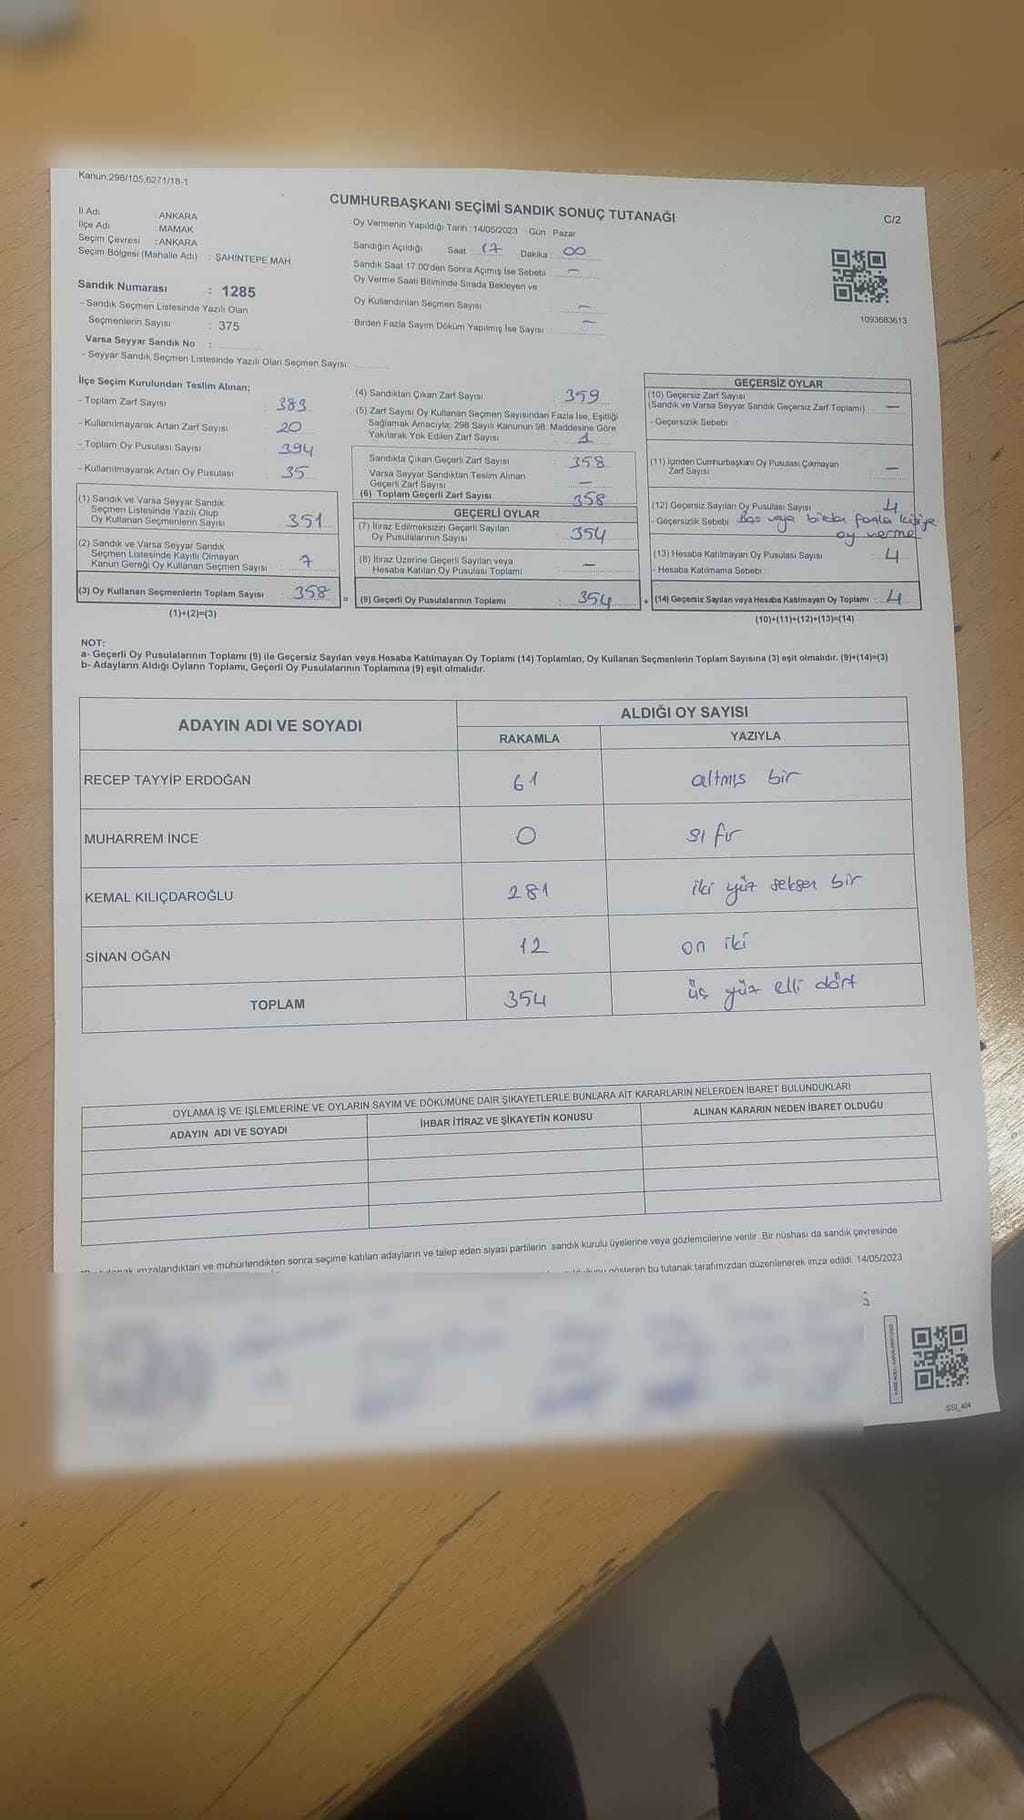 Kanun:298/105;6271/18-1
CUMHURBAŞKANI SEÇİMİ SANDIK SONUÇ TUTANAĞI
C/2
İl Adı : ANKARA
İlçe Adı : MAMAK
Seçim Çevresi : ANKARA
Seçim Bölgesi (Mahalle Adı) : ŞAHİNTEPE MAH.
Sandık Numarası : 1285
- Sandık Seçmen Listesinde Yazılı Olan
Seçmenlerin Sayısı : 375
Varsa Seyyar Sandık No :
- Seyyar Sandık Seçmen Listesinde Yazılı Olan Seçmen Sayısı:
Oy Vermenin Yapıldığı Tarih : 14/05/2023 Gün : Pazar
Sandığın Açıldığı Saat : 17 Dakika : 00
Sandık Saat 17.00'den Sonra Açılmış İse Sebebi : —
Oy Verme Saati Bitiminde Sırada Bekleyen ve
Oy Kullandırılan Seçmen Sayısı : —
Birden Fazla Sayım Döküm Yapılmış İse Sayısı : —
1093683613
İlçe Seçim Kurulundan Teslim Alınan;
- Toplam Zarf Sayısı : 383
- Kullanılmayarak Artan Zarf Sayısı : 20
- Toplam Oy Pusulası Sayısı : 394
- Kullanılmayarak Artan Oy Pusulası : 35
(1) Sandık ve Varsa Seyyar Sandık
Seçmen Listesinde Yazılı Olup
Oy Kullanan Seçmenlerin Sayısı : 351
(2) Sandık ve Varsa Seyyar Sandık
Seçmen Listesinde Kayıtlı Olmayan
Kanun Gereği Oy Kullanan Seçmen Sayısı : 7
(3) Oy Kullanan Seçmenlerin Toplam Sayısı : 358 =
(1)+(2)=(3)
(4) Sandıktan Çıkan Zarf Sayısı : 359
(5) Zarf Sayısı Oy Kullanan Seçmen Sayısından Fazla İse, Eşitliği
Sağlamak Amacıyla; 298 Sayılı Kanunun 98. Maddesine Göre
Yakılarak Yok Edilen Zarf Sayısı : 1
Sandıkta Çıkan Geçerli Zarf Sayısı : 358
Varsa Seyyar Sandıktan Teslim Alınan
Geçerli Zarf Sayısı : —
(6) Toplam Geçerli Zarf Sayısı : 358
GEÇERLİ OYLAR
(7) İtiraz Edilmeksizin Geçerli Sayılan
Oy Pusulalarının Sayısı : 354
(8) İtiraz Üzerine Geçerli Sayılan veya
Hesaba Katılan Oy Pusulası Toplamı : —
(9) Geçerli Oy Pusulalarının Toplamı : 354 +
GEÇERSİZ OYLAR
(10) Geçersiz Zarf Sayısı
(Sandık ve Varsa Seyyar Sandık Geçersiz Zarf Toplamı) : —
- Geçersizlik Sebebi :
(11) İçinden Cumhurbaşkanı Oy Pusulası Çıkmayan
Zarf Sayısı : —
(12) Geçersiz Sayılan Oy Pusulası Sayısı : 4
- Geçersizlik Sebebi : Boş veya birden fazla kişiye
oy verme
(13) Hesaba Katılmayan Oy Pusulası Sayısı : 4
- Hesaba Katılmama Sebebi :
(14) Geçersiz Sayılan veya Hesaba Katılmayan Oy Toplamı : 4
(10)+(11)+(12)+(13)=(14)
NOT:
a- Geçerli Oy Pusulalarının Toplamı (9) ile Geçersiz Sayılan veya Hesaba Katılmayan Oy Toplamı (14) Toplamları, Oy Kullanan Seçmenlerin Toplam Sayısına (3) eşit olmalıdır. (9)+(14)=(3)
b- Adayların Aldığı Oyların Toplamı, Geçerli Oy Pusulalarının Toplamına (9) eşit olmalıdır.
ADAYIN ADI VE SOYADI
ALDIĞI OY SAYISI
RAKAMLA YAZIYLA
RECEP TAYYİP ERDOĞAN 61 altmış bir
MUHARREM İNCE 0 sıfır
KEMAL KILIÇDAROĞLU 281 iki yüz seksen bir
SİNAN OĞAN 12 on iki
TOPLAM 354 üç yüz elli dört
OYLAMA İŞ VE İŞLEMLERİNE VE OYLARIN SAYIM VE DÖKÜMÜNE DAİR ŞİKAYETLERLE BUNLARA AİT KARARLARIN NELERDEN İBARET BULUNDUKLARI
ADAYIN ADI VE SOYADI İHBAR İTİRAZ VE ŞİKAYETİN KONUSU ALINAN KARARIN NEDEN İBARET OLDUĞU
imzalandıktan ve mühürlendikten sonra seçime katılan adayların ve talep eden siyasi partilerin sandık kurulu üyelerine veya gözlemcilerine verilir. Bir nüshası da sandık çevresinde
gösteren bu tutanak tarafımızdan düzenlenerek imza edildi. 14/05/2023
SSI_404